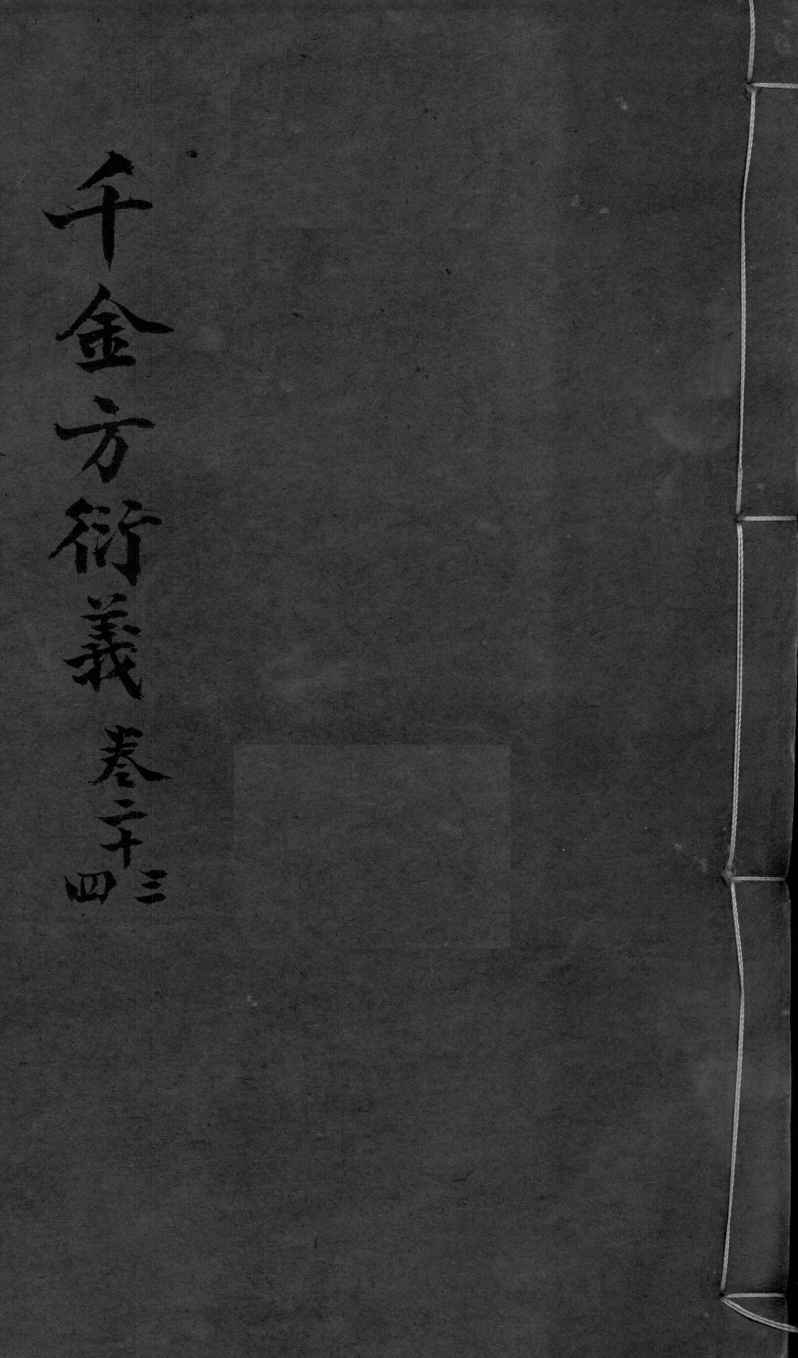 千金方衍義 卷二十三四